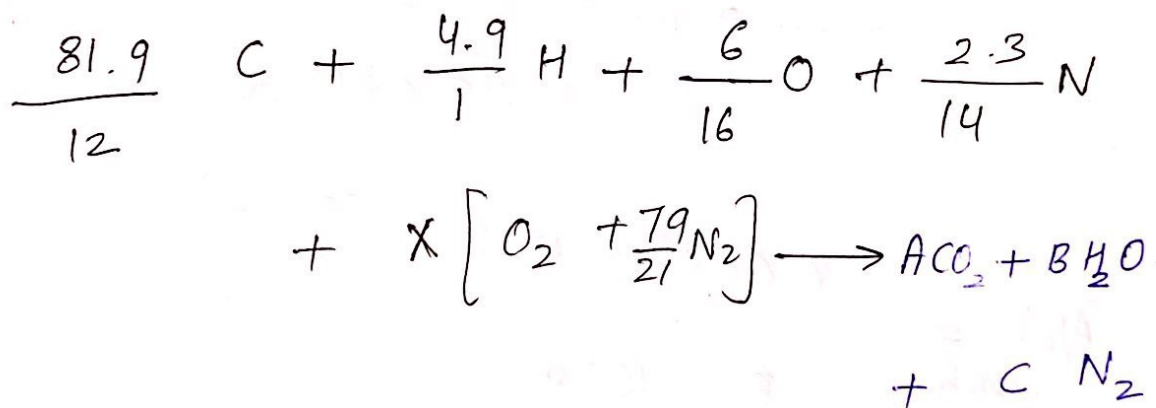 81.9/12 C + 4.9/1 H + 6/16 O + 2.3/14 N
+ X [ O₂ + 79/21 N₂ ] ⟶ ACO₂ + B H₂O
+ C N₂